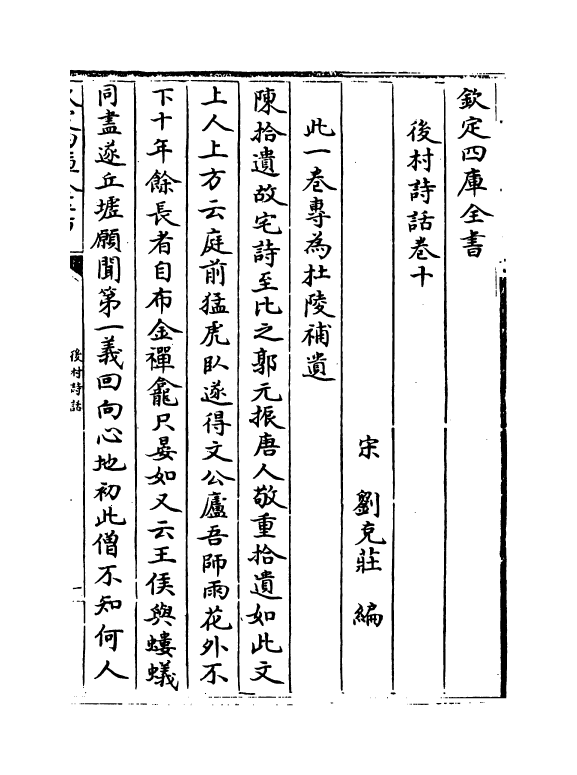 欽定四庫全書
後村詩話卷十
宋 劉克莊 編
此一卷專為杜陵補遺
陳拾遺故宅詩至比之郭元振唐人敬重拾遺如此文
上人上方云庭前猛虎臥遂得文公廬吾師雨花外不
下十年餘長者自布金禪龕只晏如又云王侯與螻蟻
同盡遂丘墟願聞第一義回向心地初此僧不知何人
後村詩話
一